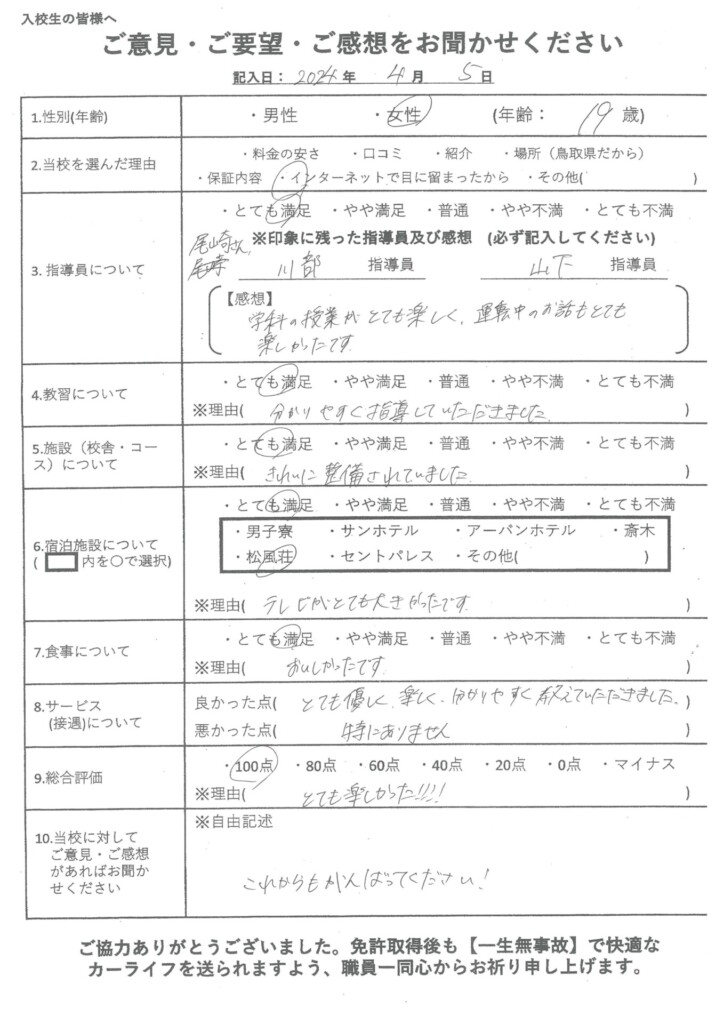 入校生の皆様へ
ご意見・ご要望・ご感想をお聞かせください
記入日： 2024 年 4 月 5 日
1.性別(年齢) ・男性 ・女性 (年齢： 19 歳)
2.当校を選んだ理由 ・料金の安さ ・口コミ ・紹介 ・場所（鳥取県だから）
・保証内容 ・インターネットで目に留まったから ・その他( )
3. 指導員について ・とても満足 ・やや満足 ・普通 ・やや不満 ・とても不満
※印象に残った指導員及び感想 (必ず記入してください)
尾崎さん
川部 指導員 山下 指導員
【感想】
学科の授業がとても楽しく、運転中のお話もとても
楽しかったです
4.教習について ・とても満足 ・やや満足 ・普通 ・やや不満 ・とても不満
※理由( 分かりやすく指導していただきました )
5.施設（校舎・コース）について ・とても満足 ・やや満足 ・普通 ・やや不満 ・とても不満
※理由( きれいに整備されていました )
6.宿泊施設について
( 内を○で選択)
・とても満足 ・やや満足 ・普通 ・やや不満 ・とても不満
・男子寮 ・サンホテル ・アーバンホテル ・斎木
・松風荘 ・セントパレス ・その他( )
※理由( テレビがとても大きかったです )
7.食事について ・とても満足 ・やや満足 ・普通 ・やや不満 ・とても不満
※理由( おいしかったです )
8.サービス
(接遇)について
良かった点( とても優しく、楽しく、分かりやすく教えていただきました。)
悪かった点( 特にありません )
9.総合評価 ・100点 ・80点 ・60点 ・40点 ・20点 ・0点 ・マイナス
※理由( とても楽しかった!!!! )
10.当校に対して
ご意見・ご感想
があればお聞か
せください
※自由記述
これからもがんばってください！
ご協力ありがとうございました。免許取得後も【一生無事故】で快適な
カーライフを送られますよう、職員一同心からお祈り申し上げます。